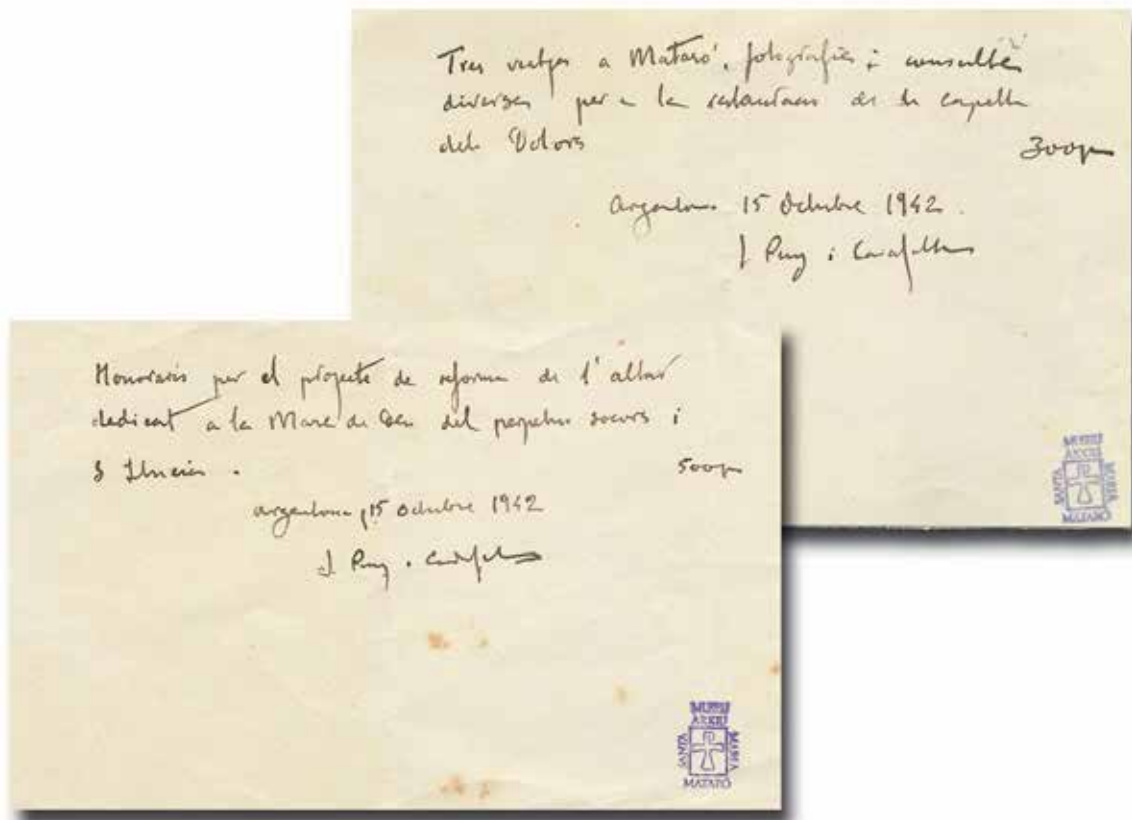 Tres viatges a Mataró, fotografies i consultes
diverses per a la restauracio de la capella
dels Dolors
300 pts
Argentona 15 Octubre 1942.
J Puig i Cadafalch
MUSEU
ARXIU
SANTA
MARIA
MATARÓ
Honoraris per el projecte de reforma de l'altar
dedicat a la Mare de Deu del perpetuu socors i
S
500 pts
Argentona, 15 octubre 1942
J. Puig i Cadafalch
MUSEU
ARXIU
SANTA
MARIA
MATARÓ